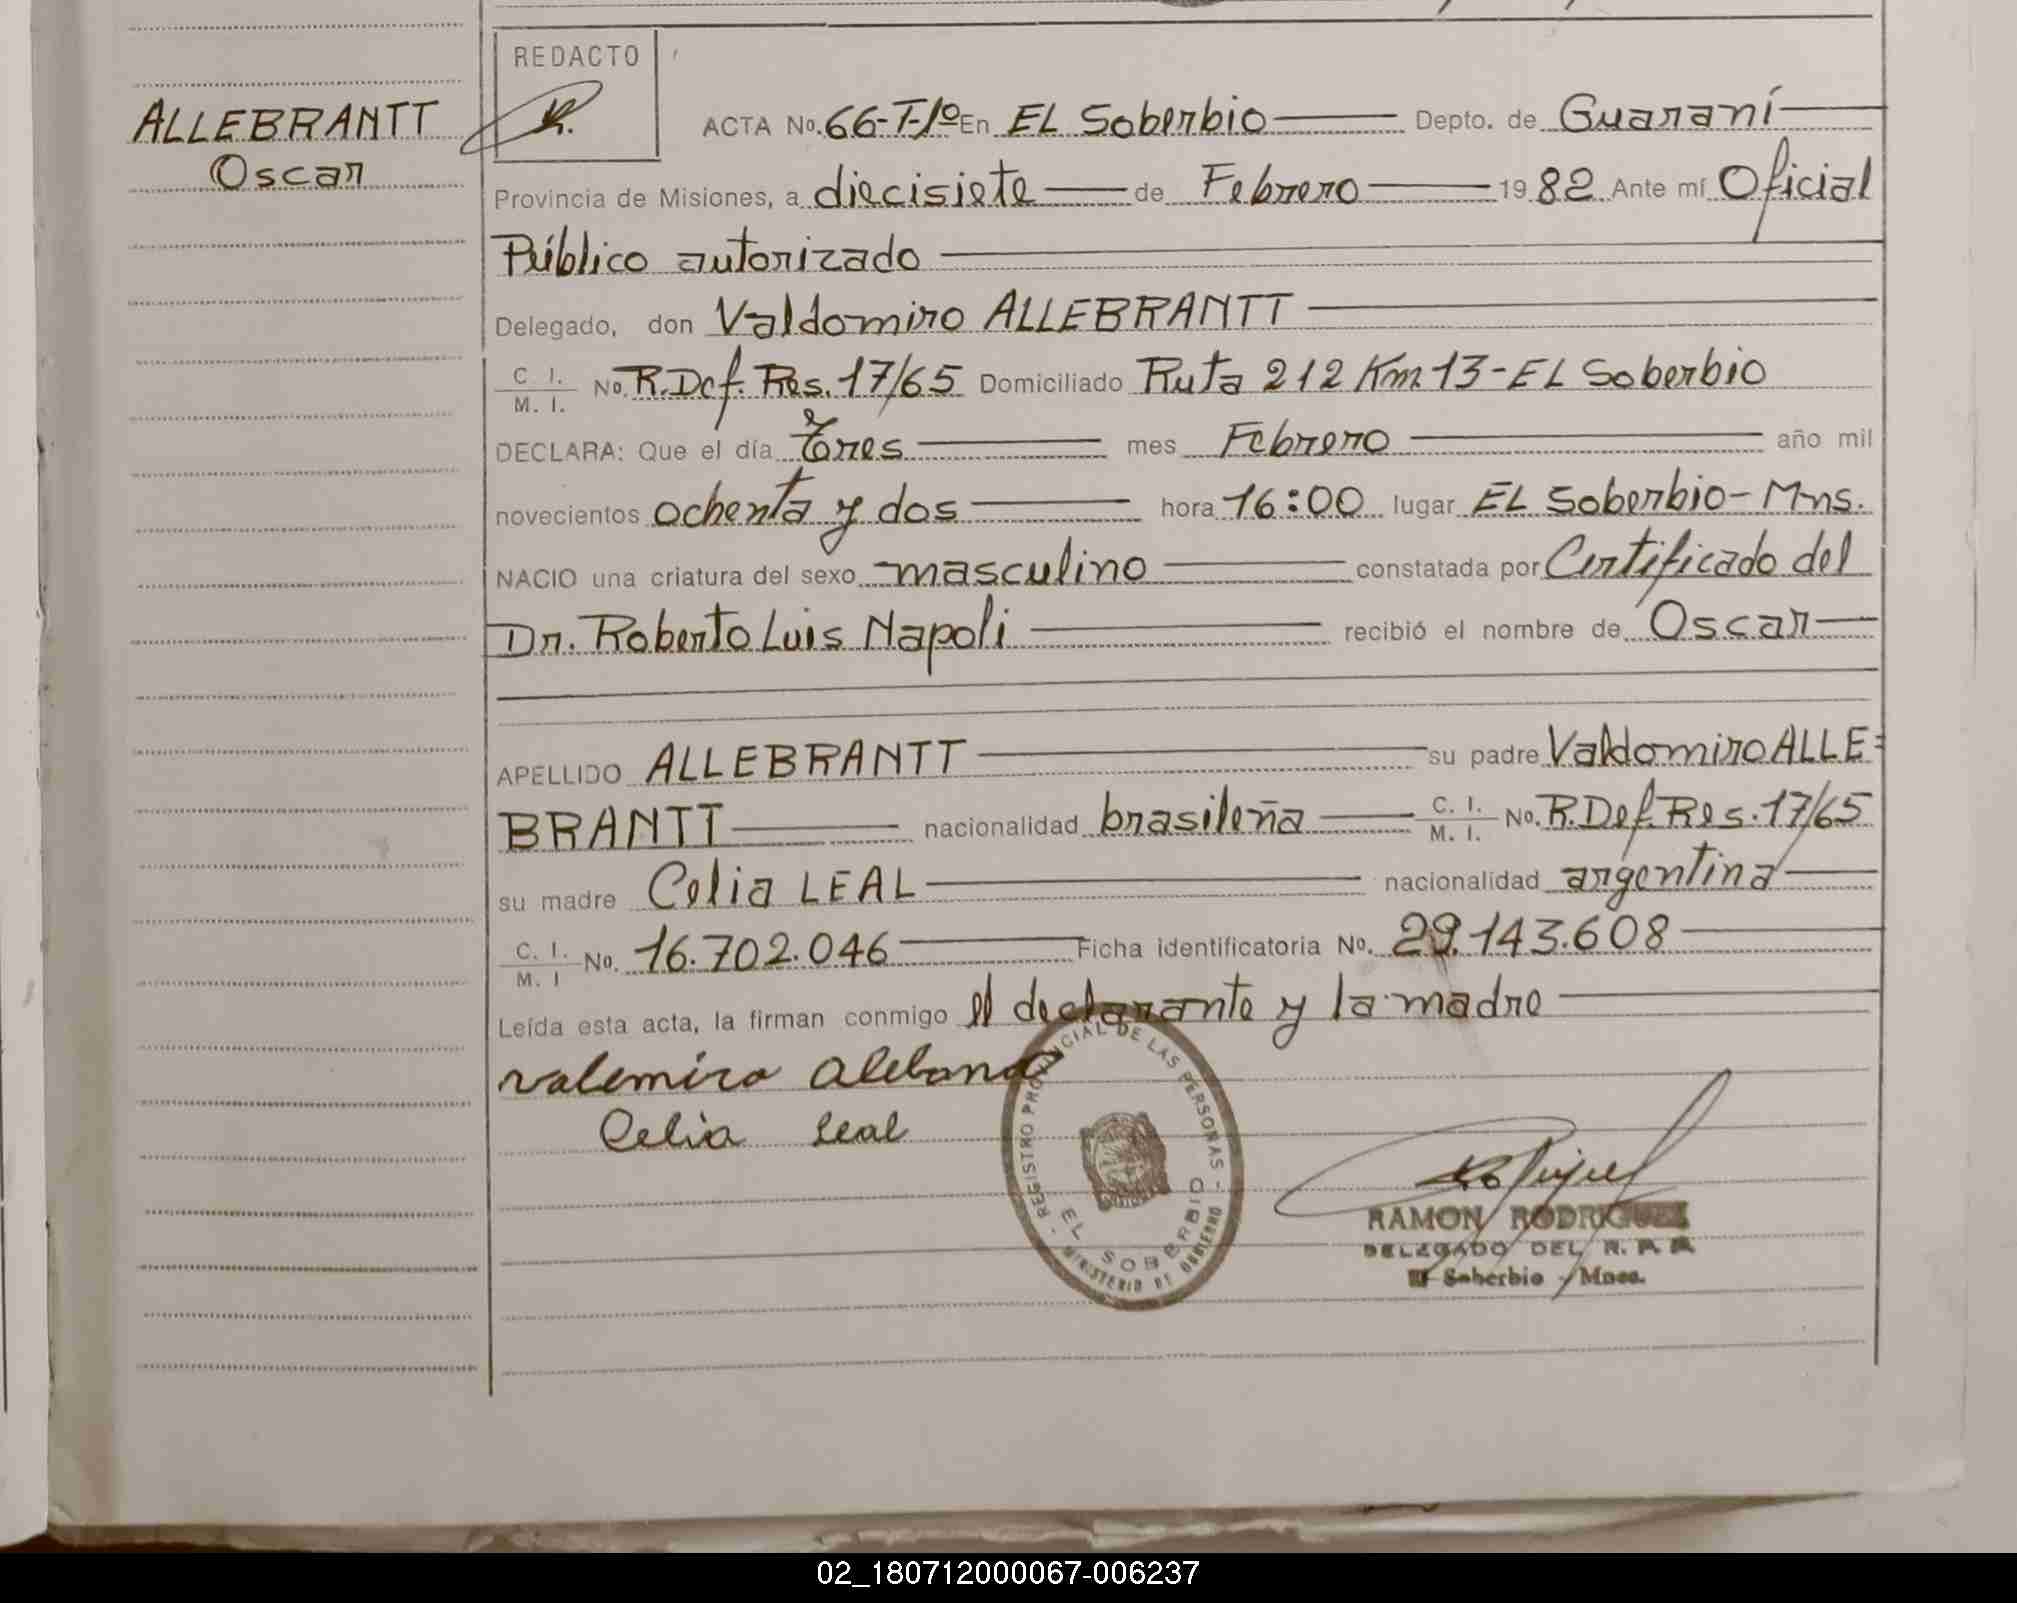 REDACTO
ALLEBRANTT
Oscar
ACTA No. 66-T-1º En EL Soberbio Depto. de Guaraní
Provincia de Misiones, a diecisiete de Febrero 1982 Ante mí Oficial
Público autorizado
Delegado, don Valdomiro ALLEBRANTT
C. I.
M. I. No. R.Def. Res. 17/65 Domiciliado Ruta 212 Km 13-EL Soberbio
DECLARA: Que el día Tres mes Febrero año mil
novecientos ochenta y dos hora 16:00 lugar EL Soberbio-Mns.
NACIO una criatura del sexo masculino constatada por Certificado del
Dr. Roberto Luis Napoli recibió el nombre de Oscar
APELLIDO ALLEBRANTT su padre Valdomiro ALLE=
BRANTT nacionalidad brasileña C. I. M. I. No. R.Def. Res. 17/65
su madre Celia LEAL nacionalidad argentina
C. I. M. I No. 16.702.046 Ficha identificatoria No. 29.143.608
Leída esta acta, la firman conmigo el declarante y la madre
Valemiro
Celia Leal
REGISTRO PROVINCIAL DE LAS PERSONAS - MINISTERIO DE GOBIERNO -
EL SOBERBIO
RAMON RODRIGUEZ
DELEGADO DEL R. P. P.
El Soberbio - Mnes.
02_180712000067-006237